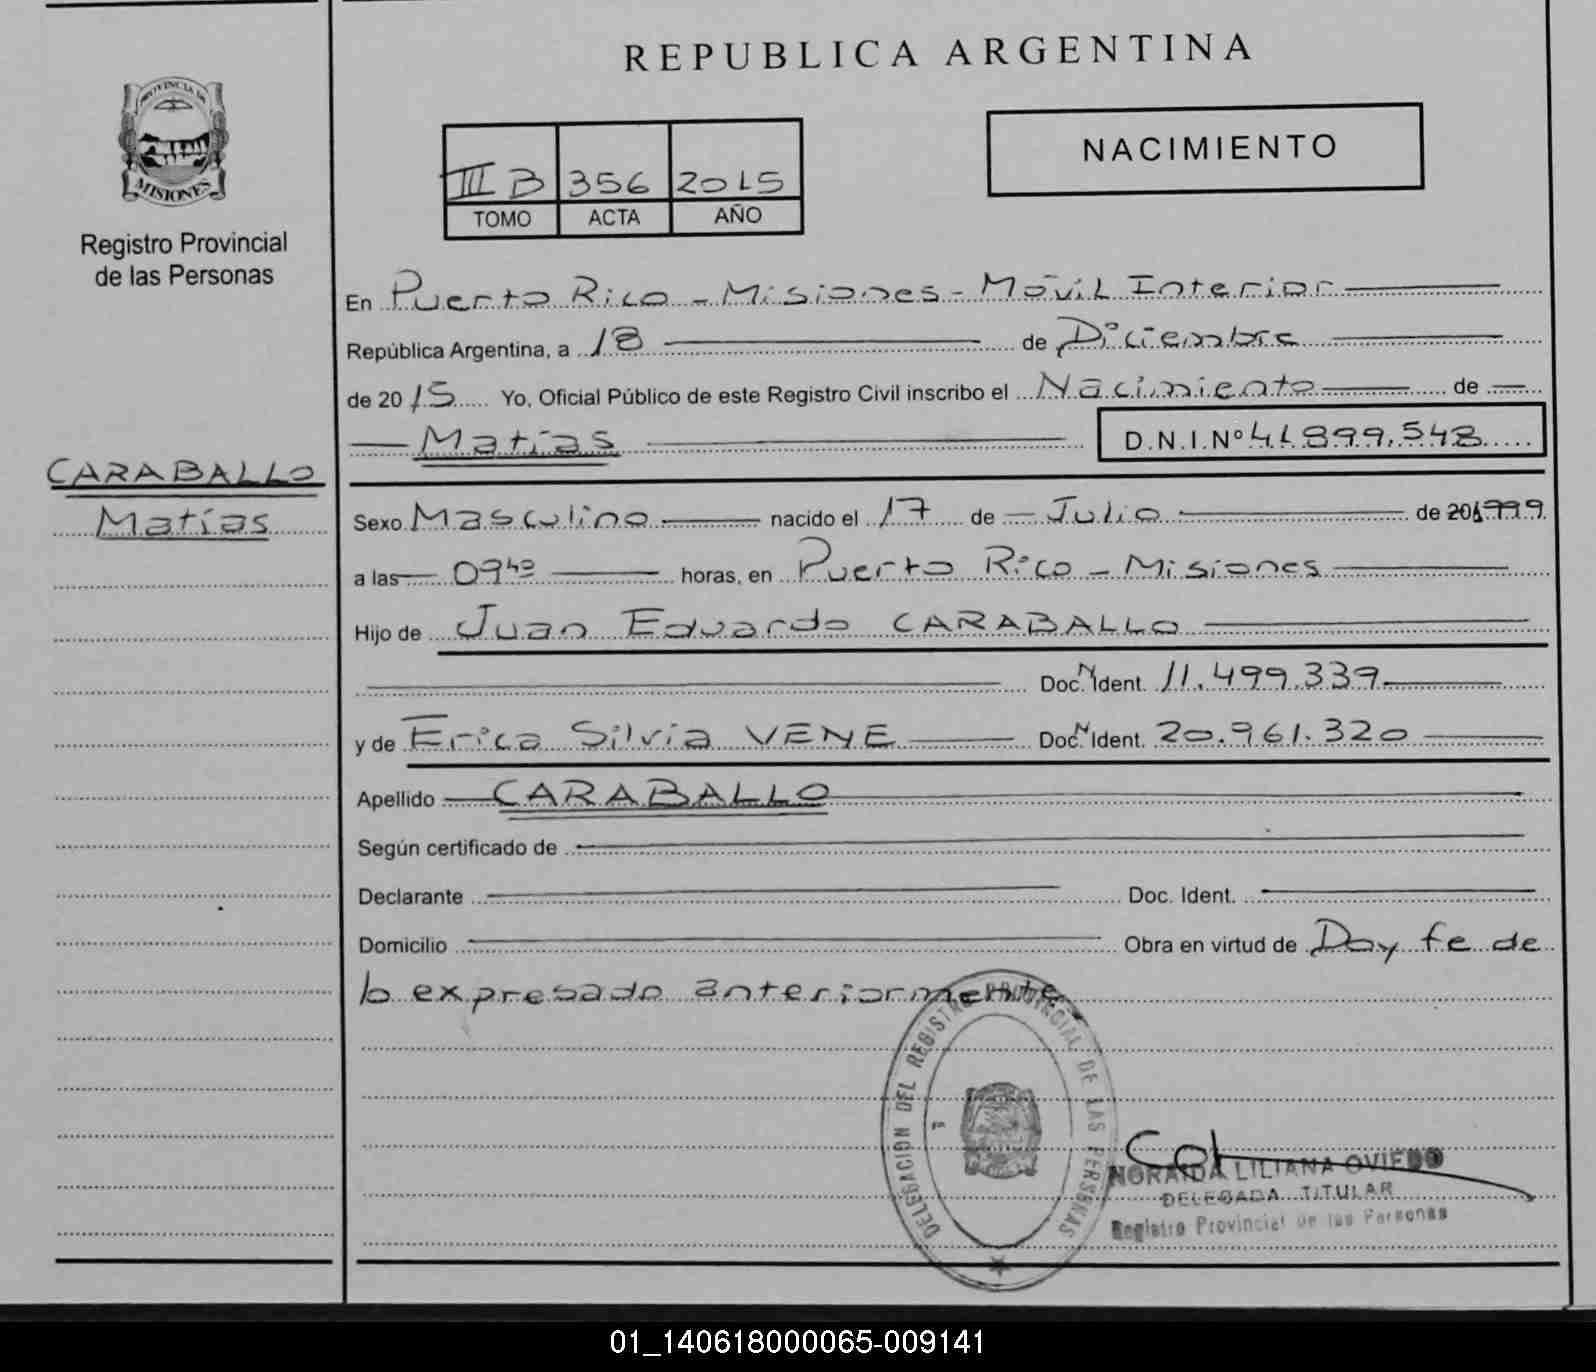 REPUBLICA ARGENTINA
PROVINCIA DE
MISIONES
Registro Provincial
de las Personas
NACIMIENTO
III B 356 2015
TOMO ACTA AÑO
En Puerto Rico - Misiones - Móvil Interior
República Argentina, a 18 de Diciembre
de 2015 Yo, Oficial Público de este Registro Civil inscribo el Nacimiento de
Matías D.N.I.Nº 41.899.548
CARABALLO
Matías
Sexo Masculino nacido el 17 de Julio de 1999
a las 09⁴⁰ horas, en Puerto Rico - Misiones
Hijo de Juan Eduardo CARABALLO
Doc. N Ident. 11.499.339
y de Erica Silvia VENE Doc. N Ident. 20.961.320
Apellido CARABALLO
Según certificado de
Declarante Doc. Ident.
Domicilio Obra en virtud de Doy fe de
lo expresado anteriormente
DELEGACION DEL REGISTRO PROVINCIAL DE LAS PERSONAS
NORAIDA LILIANA OVIEDO
DELEGADA TITULAR
Registro Provincial de las Personas
01_140618000065-009141